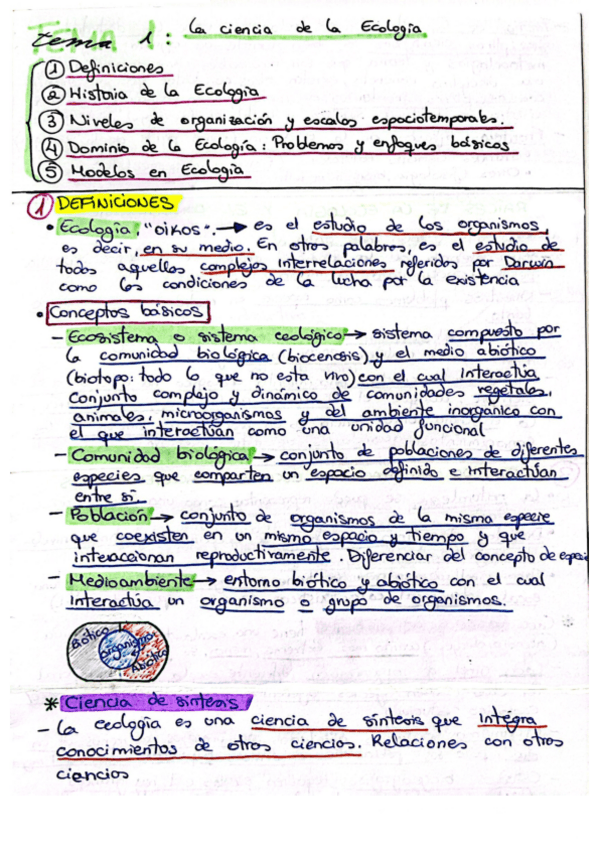 Tema 1: La ciencia de la Ecología
① Definiciones
② Historia de la Ecología
③ Niveles de organización y escalas espaciotemporales.
④ Dominio de la Ecología: Problemas y enfoques básicos
⑤ Modelos en Ecología
① DEFINICIONES
• Ecología, "OIKOS". → es el estudio de los organismos,
es decir, en su medio. En otras palabras, es el estudio de
todas aquellas complejas interrelaciones referidas por Darwin
como las condiciones de la lucha por la existencia
• Conceptos básicos
- Ecosistema o sistema ecológico → sistema compuesto por
la comunidad biológica (biocenosis) y el medio abiótico
(biotopo: todo lo que no esta vivo) con el cual interactúa
Conjunto complejo y dinámico de comunidades vegetales,
animales, microorganismos y del ambiente inorgánico con
el que interactúan como una unidad funcional
- Comunidad biológica → conjunto de poblaciones de diferentes
especies que comparten un espacio definido e interactúan
entre sí.
- Población → conjunto de organismos de la misma especie
que coexisten en un mismo espacio y tiempo y que
interaccionan reproductivamente. Diferenciar del concepto de especie
- Medioambiente → entorno biótico y abiótico con el cual
interactúa un organismo o grupo de organismos.
Biótico
organismo
Abiótico
* Ciencia de síntesis
- La ecología es una ciencia de síntesis que integra
conocimientos de otras ciencias. Relaciones con otras
ciencias